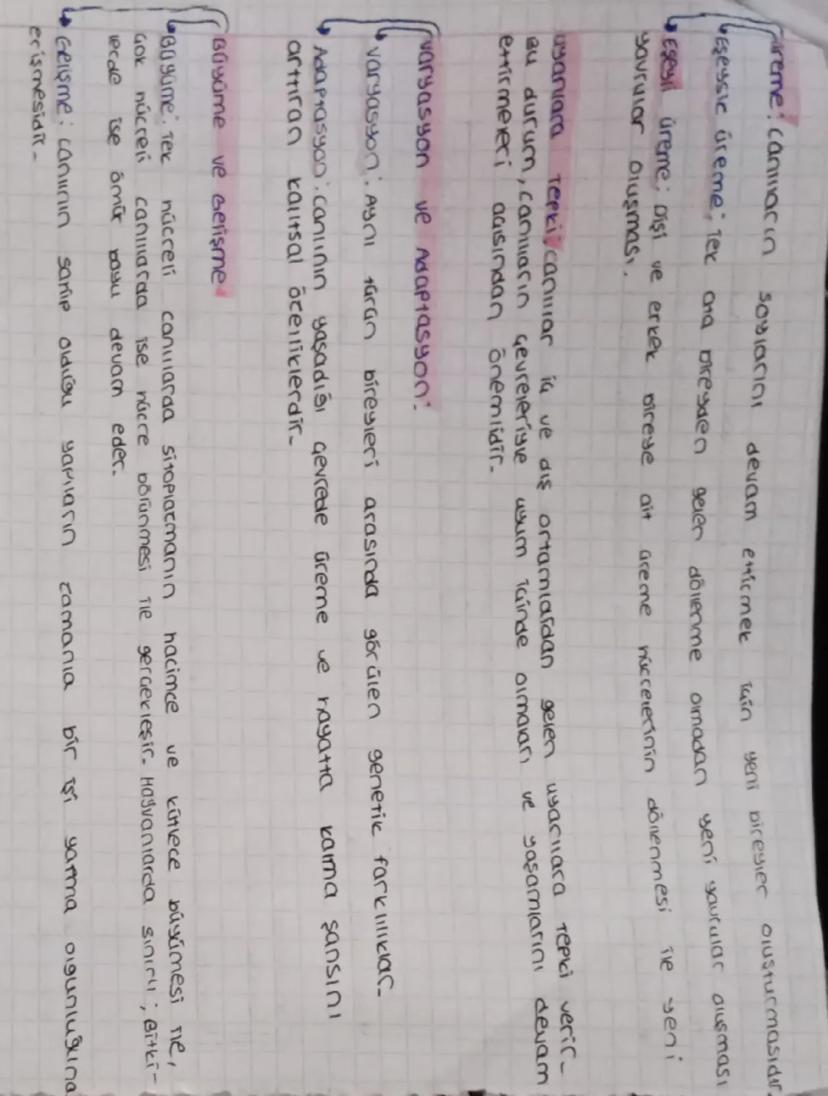 Üreme: Canlıların soylarını devam ettirmek için yeni bireyler oluşturmasıdır.
Eşeysiz üreme: Tek ana bireyden gelen döllenme olmadan yeni yavrular oluşması
Eşeyli üreme: Dişi ve erkek bireye ait üreme hücrelerinin döllenmesi ile yeni
yavrular oluşması.
Uyarılara Tepki: Canlılar iç ve dış ortamlardan gelen uyarılara tepki verir.
Bu durum, canlıların çevreleriyle uyum içinde olmaları ve yaşamlarını devam
ettirmeleri açısından önemlidir.
Varyasyon ve Adaptasyon:
Varyasyon: Aynı türün bireyleri arasında görülen genetik farklılıklar.
Adaptasyon: Canlının yaşadığı çevrede üreme ve hayatta kalma şansını
arttıran kalıtsal özelliklerdir.
Büyüme ve Gelişme
Büyüme: Tek hücreli canlılarda sitoplazmanın hacimce ve kütlece büyümesi ile,
çok hücreli canlılarda ise hücre bölünmesi ile gerçekleşir. Hayvanlarda sınırlı, Bitki-
lerde ise ömür boyu devam eder.
Gelişme: Canlının sahip olduğu yapıların zamanla bir işi yapma olgunluğuna
erişmesidir.